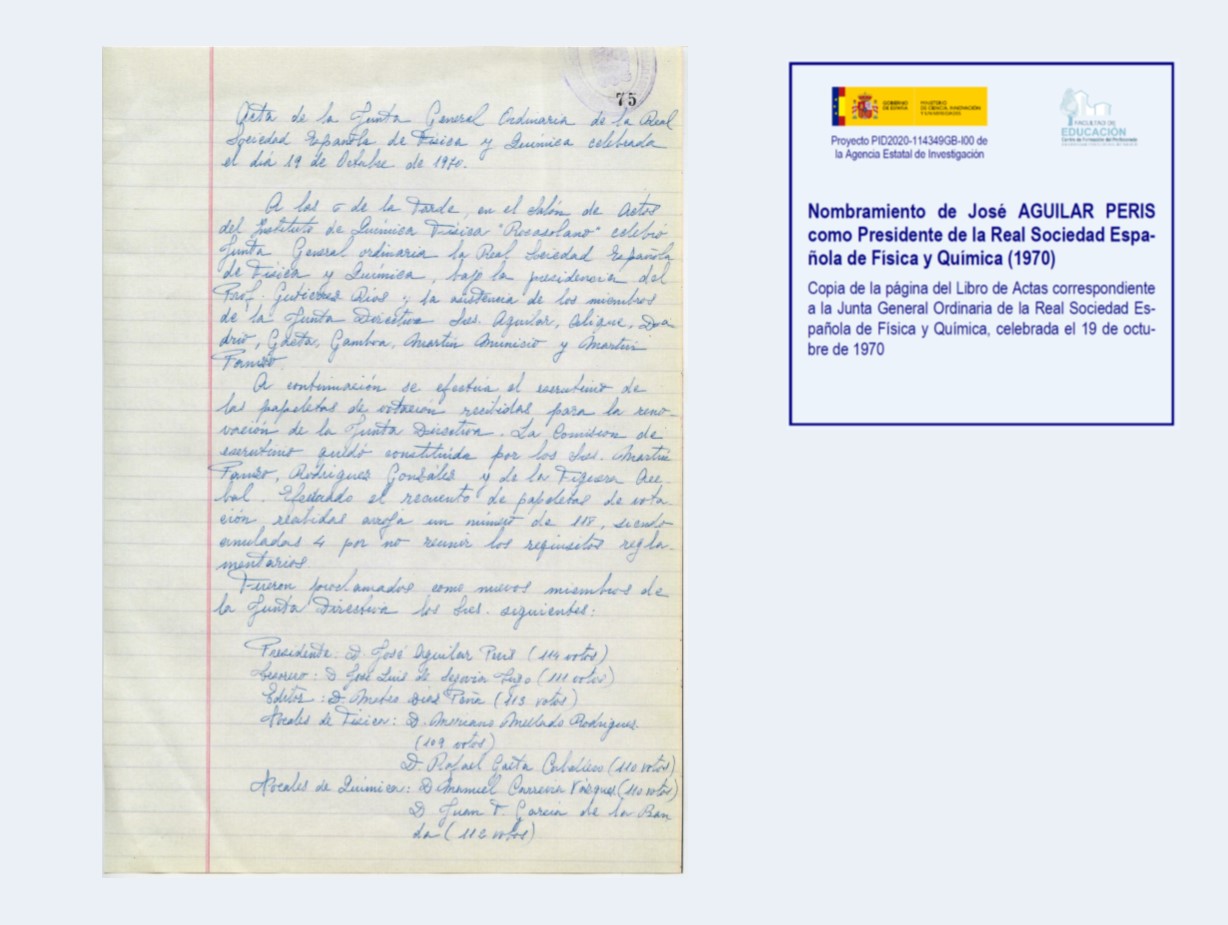 75
Acta de la Junta General Ordinaria de la Real
Sociedad Española de Física y Química celebrada
el día 19 de Octubre de 1970.
A las 5 de la tarde, en el Salón de Actos
del Instituto de Química Física "Rocasolano" celebró
Junta General ordinaria la Real Sociedad Española
de Física y Química, bajo la presidencia del
Prof. Gutiérrez Ríos y la asistencia de los miembros
de la Junta Directiva Sres. Aguilar, Alique, Dea
drio, Gaeta, Gamboa, Martín Municio y Martín
Panizo.
A continuación se efectúa el escrutinio de
las papeletas de votación recibidas para la reno-
vación de la Junta Directiva. La Comisión de
escrutinio quedó constituida por los Sres. Martín
Panizo, Rodríguez González y de la Figuera Ace
bal. Efectuado el recuento de papeletas de vota
ción recibidas arroja un número de 118, siendo
anuladas 4 por no reunir los requisitos regla-
mentarios.
Fueron proclamados como nuevos miembros de
la Junta Directiva los Sres. siguientes:
Presidente: D. José Aguilar Peris (114 votos)
Tesorero: D. José Luis de Segovia (111 votos)
Editor: D. Mateo Díaz Peña (113 votos)
Vocales de Física: D. Mariano Mellado Rodríguez
(109 votos)
D. Rafael Gaeta (110 votos)
Vocales de Química: D Manuel Carreira Vázquez (110 votos)
D Juan F. García de la Ban
da (112 votos)
GOBIERNO DE ESPAÑA
MINISTERIO DE CIENCIA, INNOVACIÓN Y UNIVERSIDADES
FACULTAD DE
EDUCACIÓN
Centro de Formación del Profesorado
Proyecto PID2020-114349GB-I00 de
la Agencia Estatal de Investigación
Nombramiento de José AGUILAR PERIS
como Presidente de la Real Sociedad Espa-
ñola de Física y Química (1970)
Copia de la página del Libro de Actas correspondiente
a la Junta General Ordinaria de la Real Sociedad Es-
pañola de Física y Química, celebrada el 19 de octu-
bre de 1970